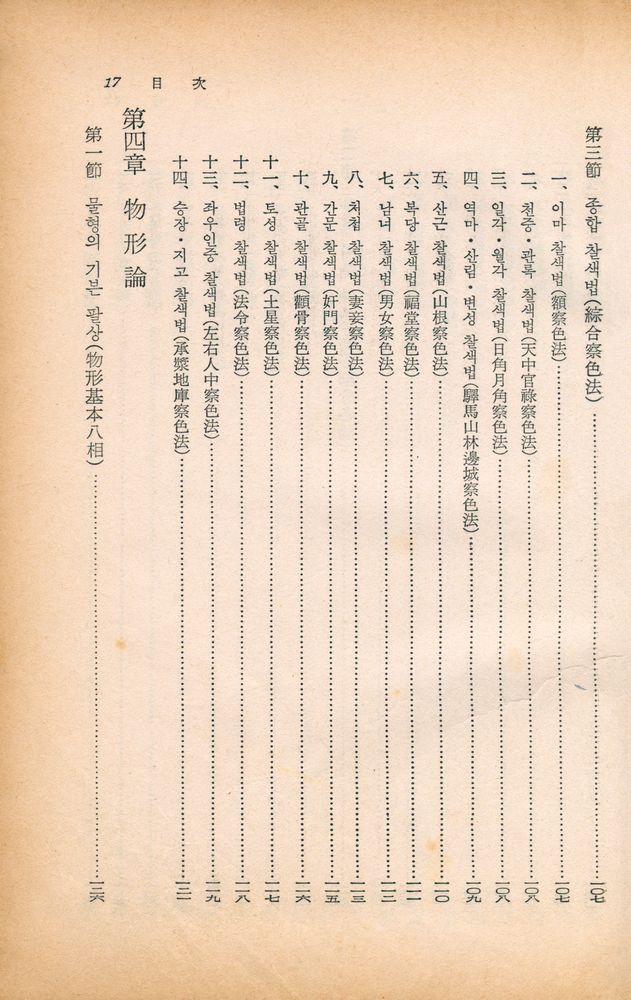 17 目 次
第三節 종합 찰색법(綜合察色法)……一〇七
一、이마 찰색법(額察色法)……一〇七
二、천중·관록 찰색법(天中官祿察色法)……一〇八
三、일각·월각 찰색법(日角月角察色法)……一〇八
四、역마·산림·변성 찰색법(驛馬山林邊城察色法)……一〇九
五、산근 찰색법(山根察色法)……一一〇
六、복당 찰색법(福堂察色法)……一一一
七、남녀 찰색법(男女察色法)……一一二
八、처첩 찰색법(妻妾察色法)……一一三
九、간문 찰색법(奸門察色法)……一一五
十、관골 찰색법(顴骨察色法)……一一六
十一、토성 찰색법(土星察色法)……一一七
十二、법령 찰색법(法令察色法)……一一八
十三、좌우인중 찰색법(左右人中察色法)……一一九
十四、승장·지고 찰색법(承漿地庫察色法)……一二一
第四章 物形論
第一節 물형의 기본 팔상(物形基本八相)……一二六